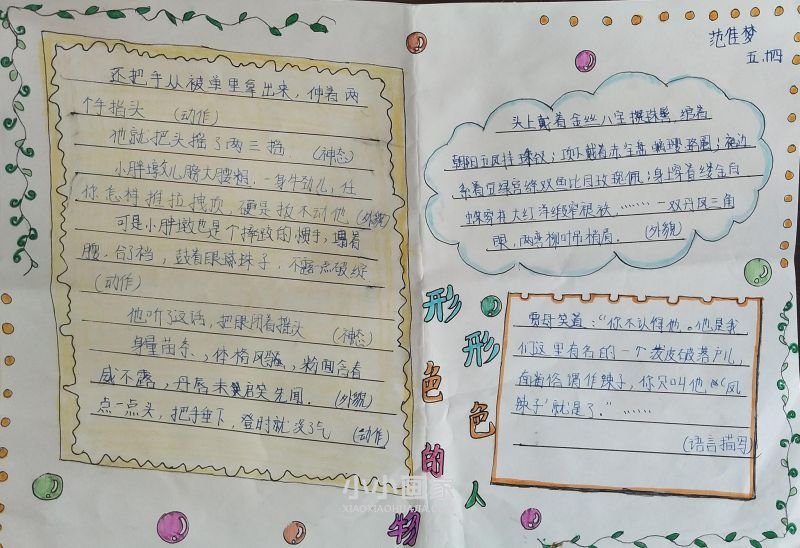 还把手从被单里拿出来，伸着两
个手指头 (动作)
他就把头摇了两三摇 (神态)
小胖墩儿膀大腰粗，一身牛劲儿，任
你怎样推拉拽顶，硬是扳不动他 (外貌)
可是小胖墩也是个摔跤的惯手，塌着
腰，合了裆，鼓着眼珠子，不露点破绽
(动作)
他听了这话，把眼闭着摇头 (神态)
身量苗条、体格风骚，粉面含春
威不露，丹唇未启笑先闻。 (外貌)
点一点头，把手垂下，登时就没了气 (动作)
形形色色的人物
范佳梦
五.四
头上戴着金丝八宝攒珠髻，绾着
朝阳五凤挂珠钗；项下戴着赤金盘螭璎珞圈；裙边
系着豆绿宫绦双鱼比目玫瑰佩；身上穿着缕金百
蝶穿花大红洋缎窄裉袄，……一双丹凤三角
眼，两弯柳叶吊梢眉。 (外貌)
贾母笑道：“你不认得他。他是我
们这里有名的一个泼皮破落户儿，
南省俗谓作辣子，你只叫他“凤
辣子’就是了。”……
(语言描写)
小小画家
XIAOXIAOHUAJIA.COM